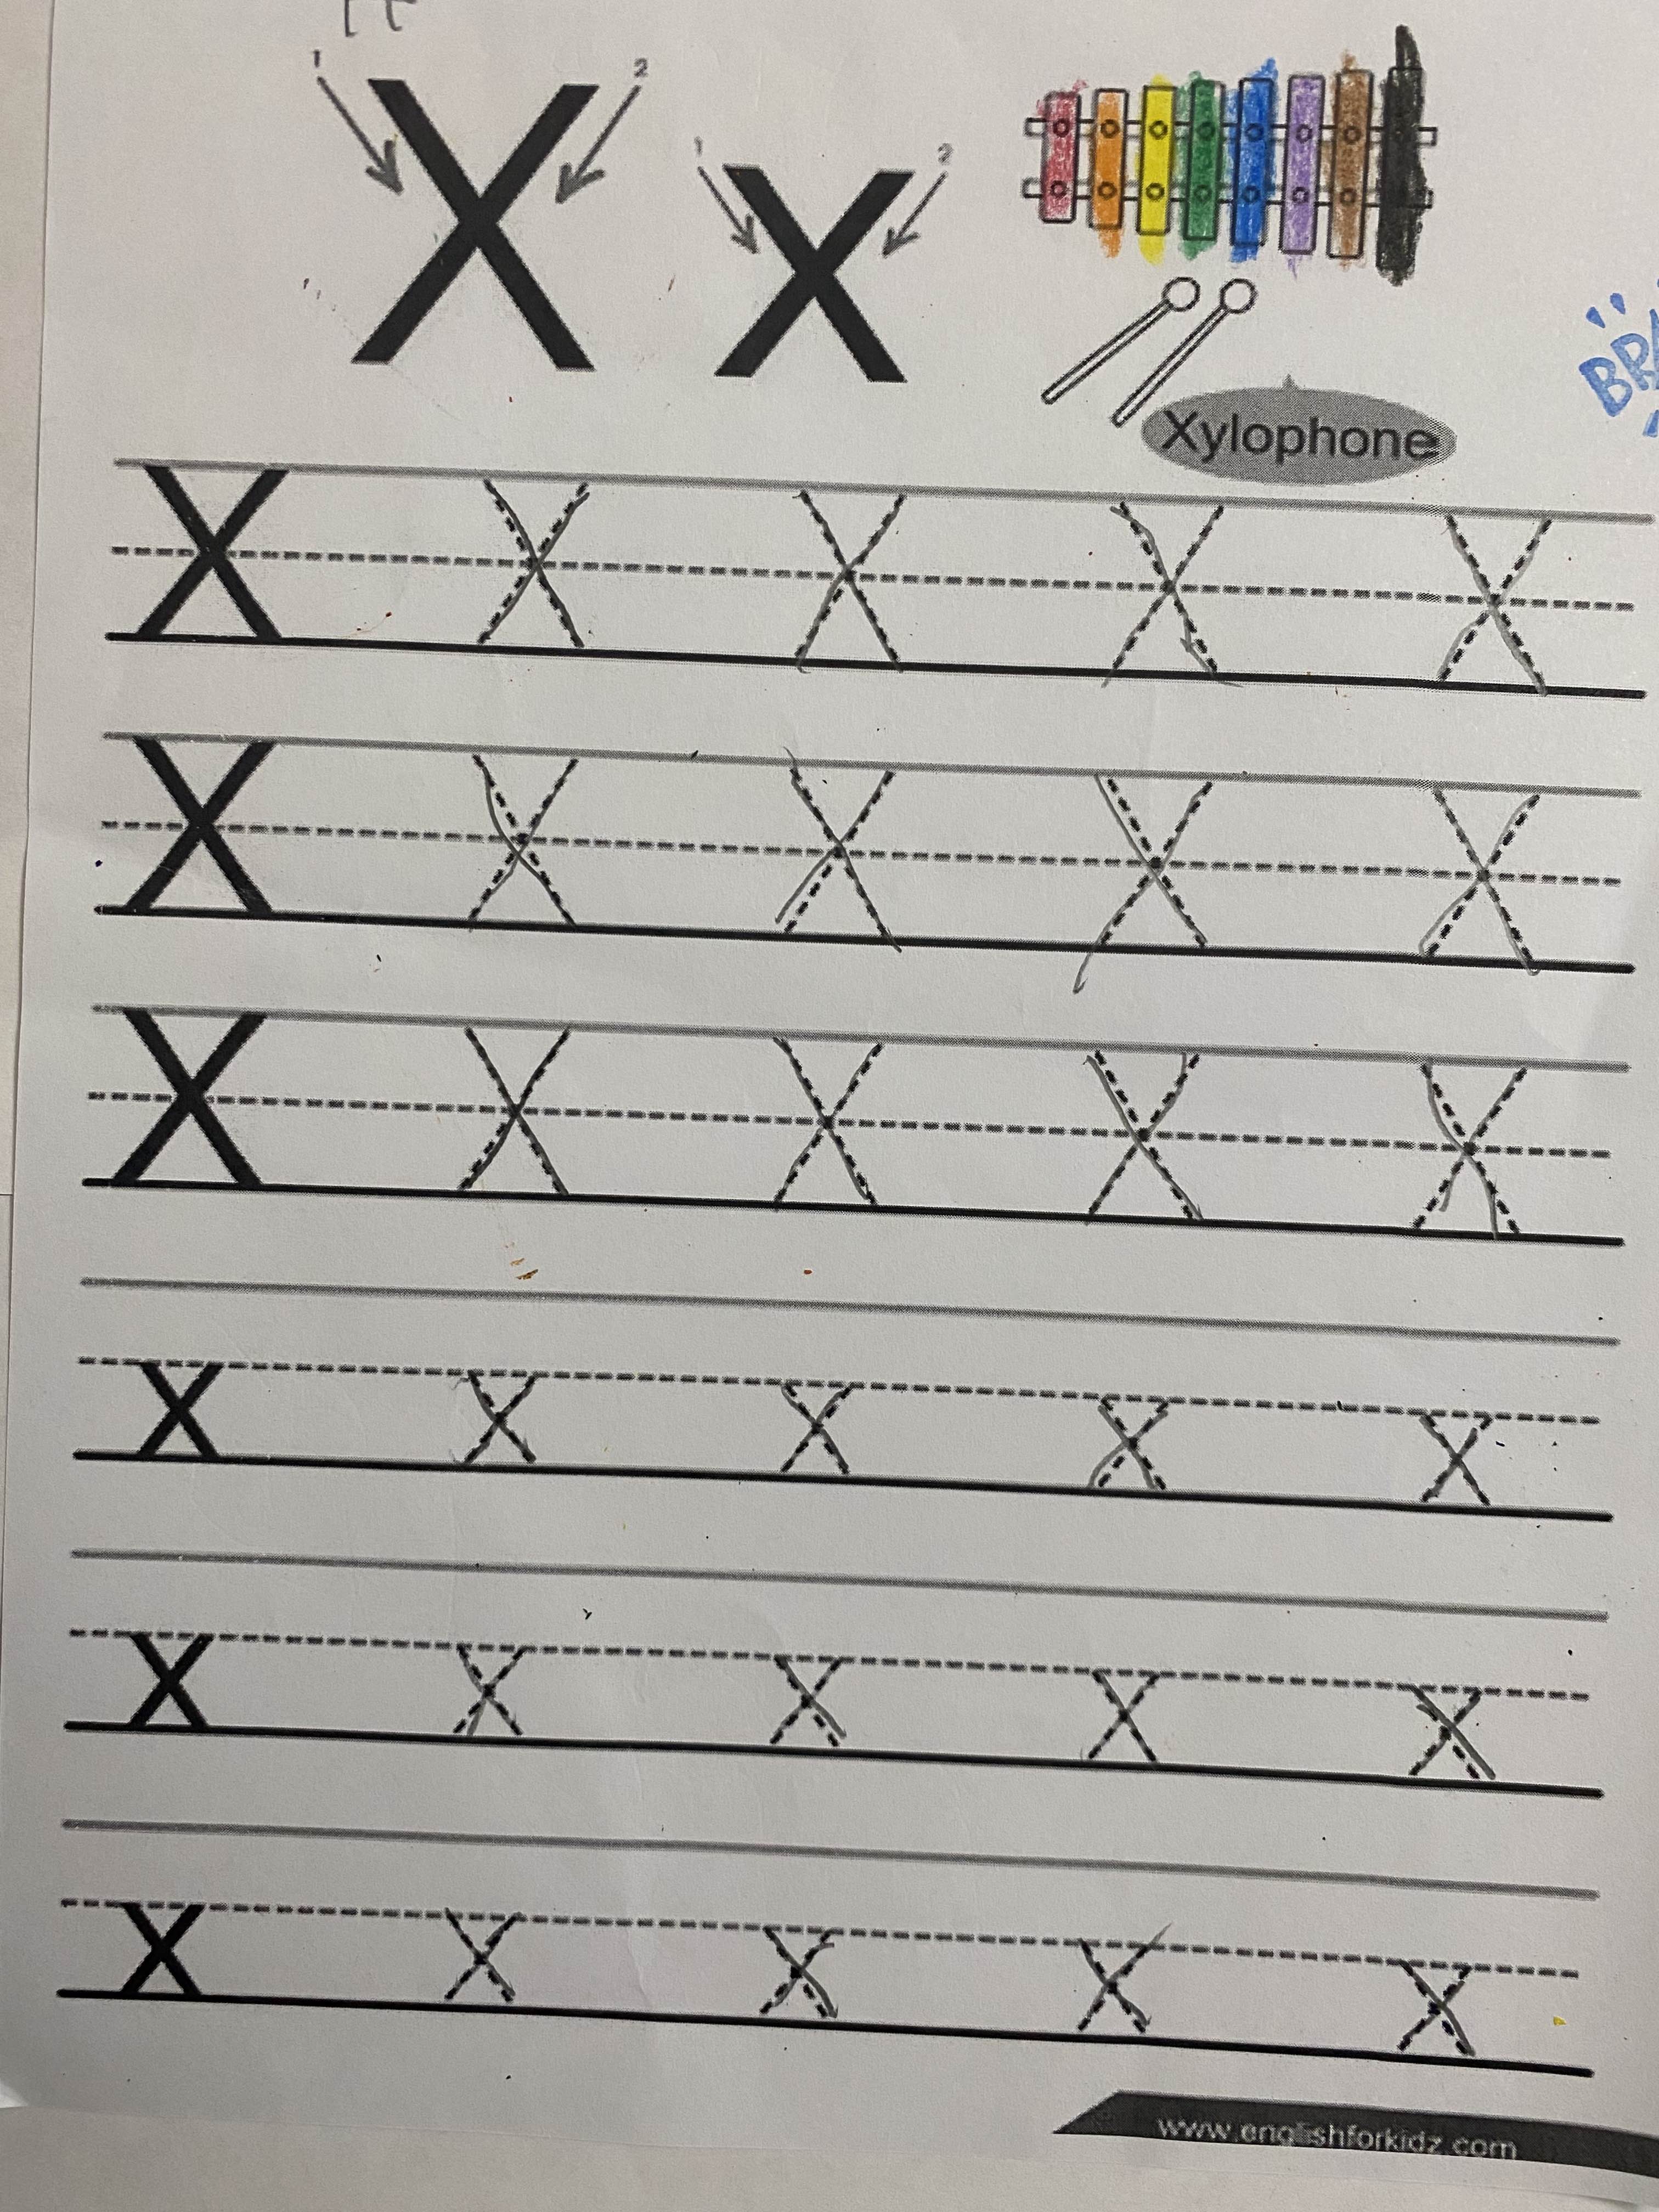 1 2
X
1 2
x
Xylophone
X X X X X
X X X X X
X X X X X
x x x x x
x x x x x
x x x x x
www.englishforkidz.com